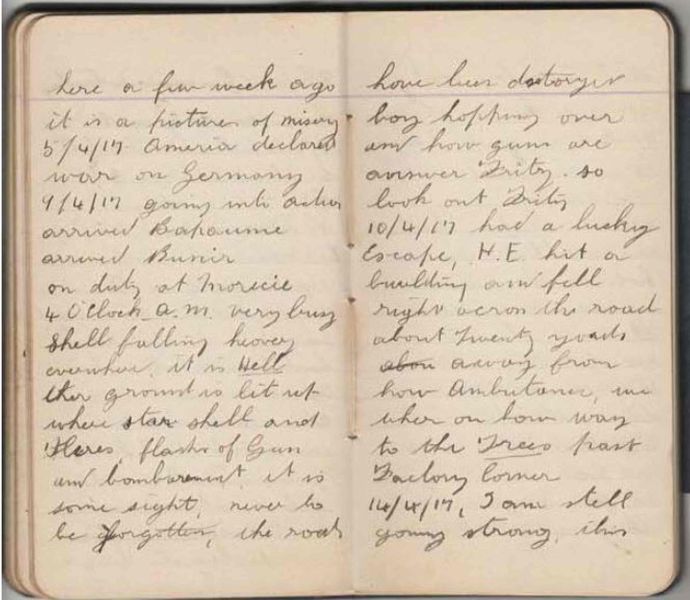 here a few week ago
it is a picture of misery
5/4/17 Ameria declared
war on Germany
9/4/17 going into action
arrived Bapaume
arrived
on duty at
4 O'Clock a.m. very busy
shell falling heavey
everwher, it is Hell
ther ground is lit up
wher star shell and
flares, flash of Gun
and bombarment it is
some sight, never to
be forgotten, the road
have been
boy hopping over
and how guns are
answer Fritz. so
look out Fritz
10/4/17 had a lucky
Escape, H.E. hit a
building and fell
right across the road
about Twenty yards
away from
how Ambulance, we
wher on how way
to the Trees past
Factory Corner
14/4/17, I am still
going strong, this